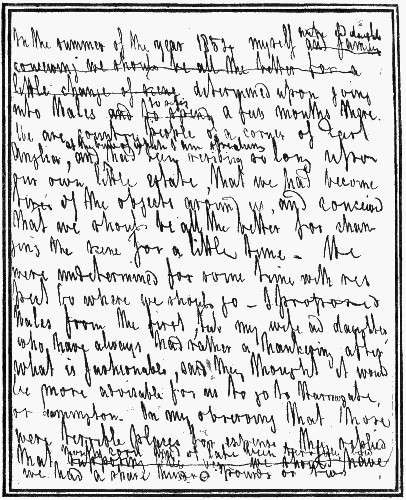 wife and daughter
In the summer of the year 1854 myself and family
conceiving we should be all the better for a
little change of scene determined upon going
to pass
into Wales and to spend a few months there.
We are country people of a corner of East
at the time of which I am speaking
Anglia, and had been residing so long upon
our own little estate, that we had become
tired of the objects around us, and conceived
that we should be all the better for chan
ging the scene for a little time - We
were undetermined for some time with res
pect to where we should go - I proposed
Wales from the first, but my wife and daughter
who have always had rather a hankering after
what is fashionable, said they thought it would
be more advisable for us to go to Harrowgate
or Leamington. On my observing that those
were terrible places for expense they replied
though corn had of late been
that we should have
we had a spare hundred pounds or two